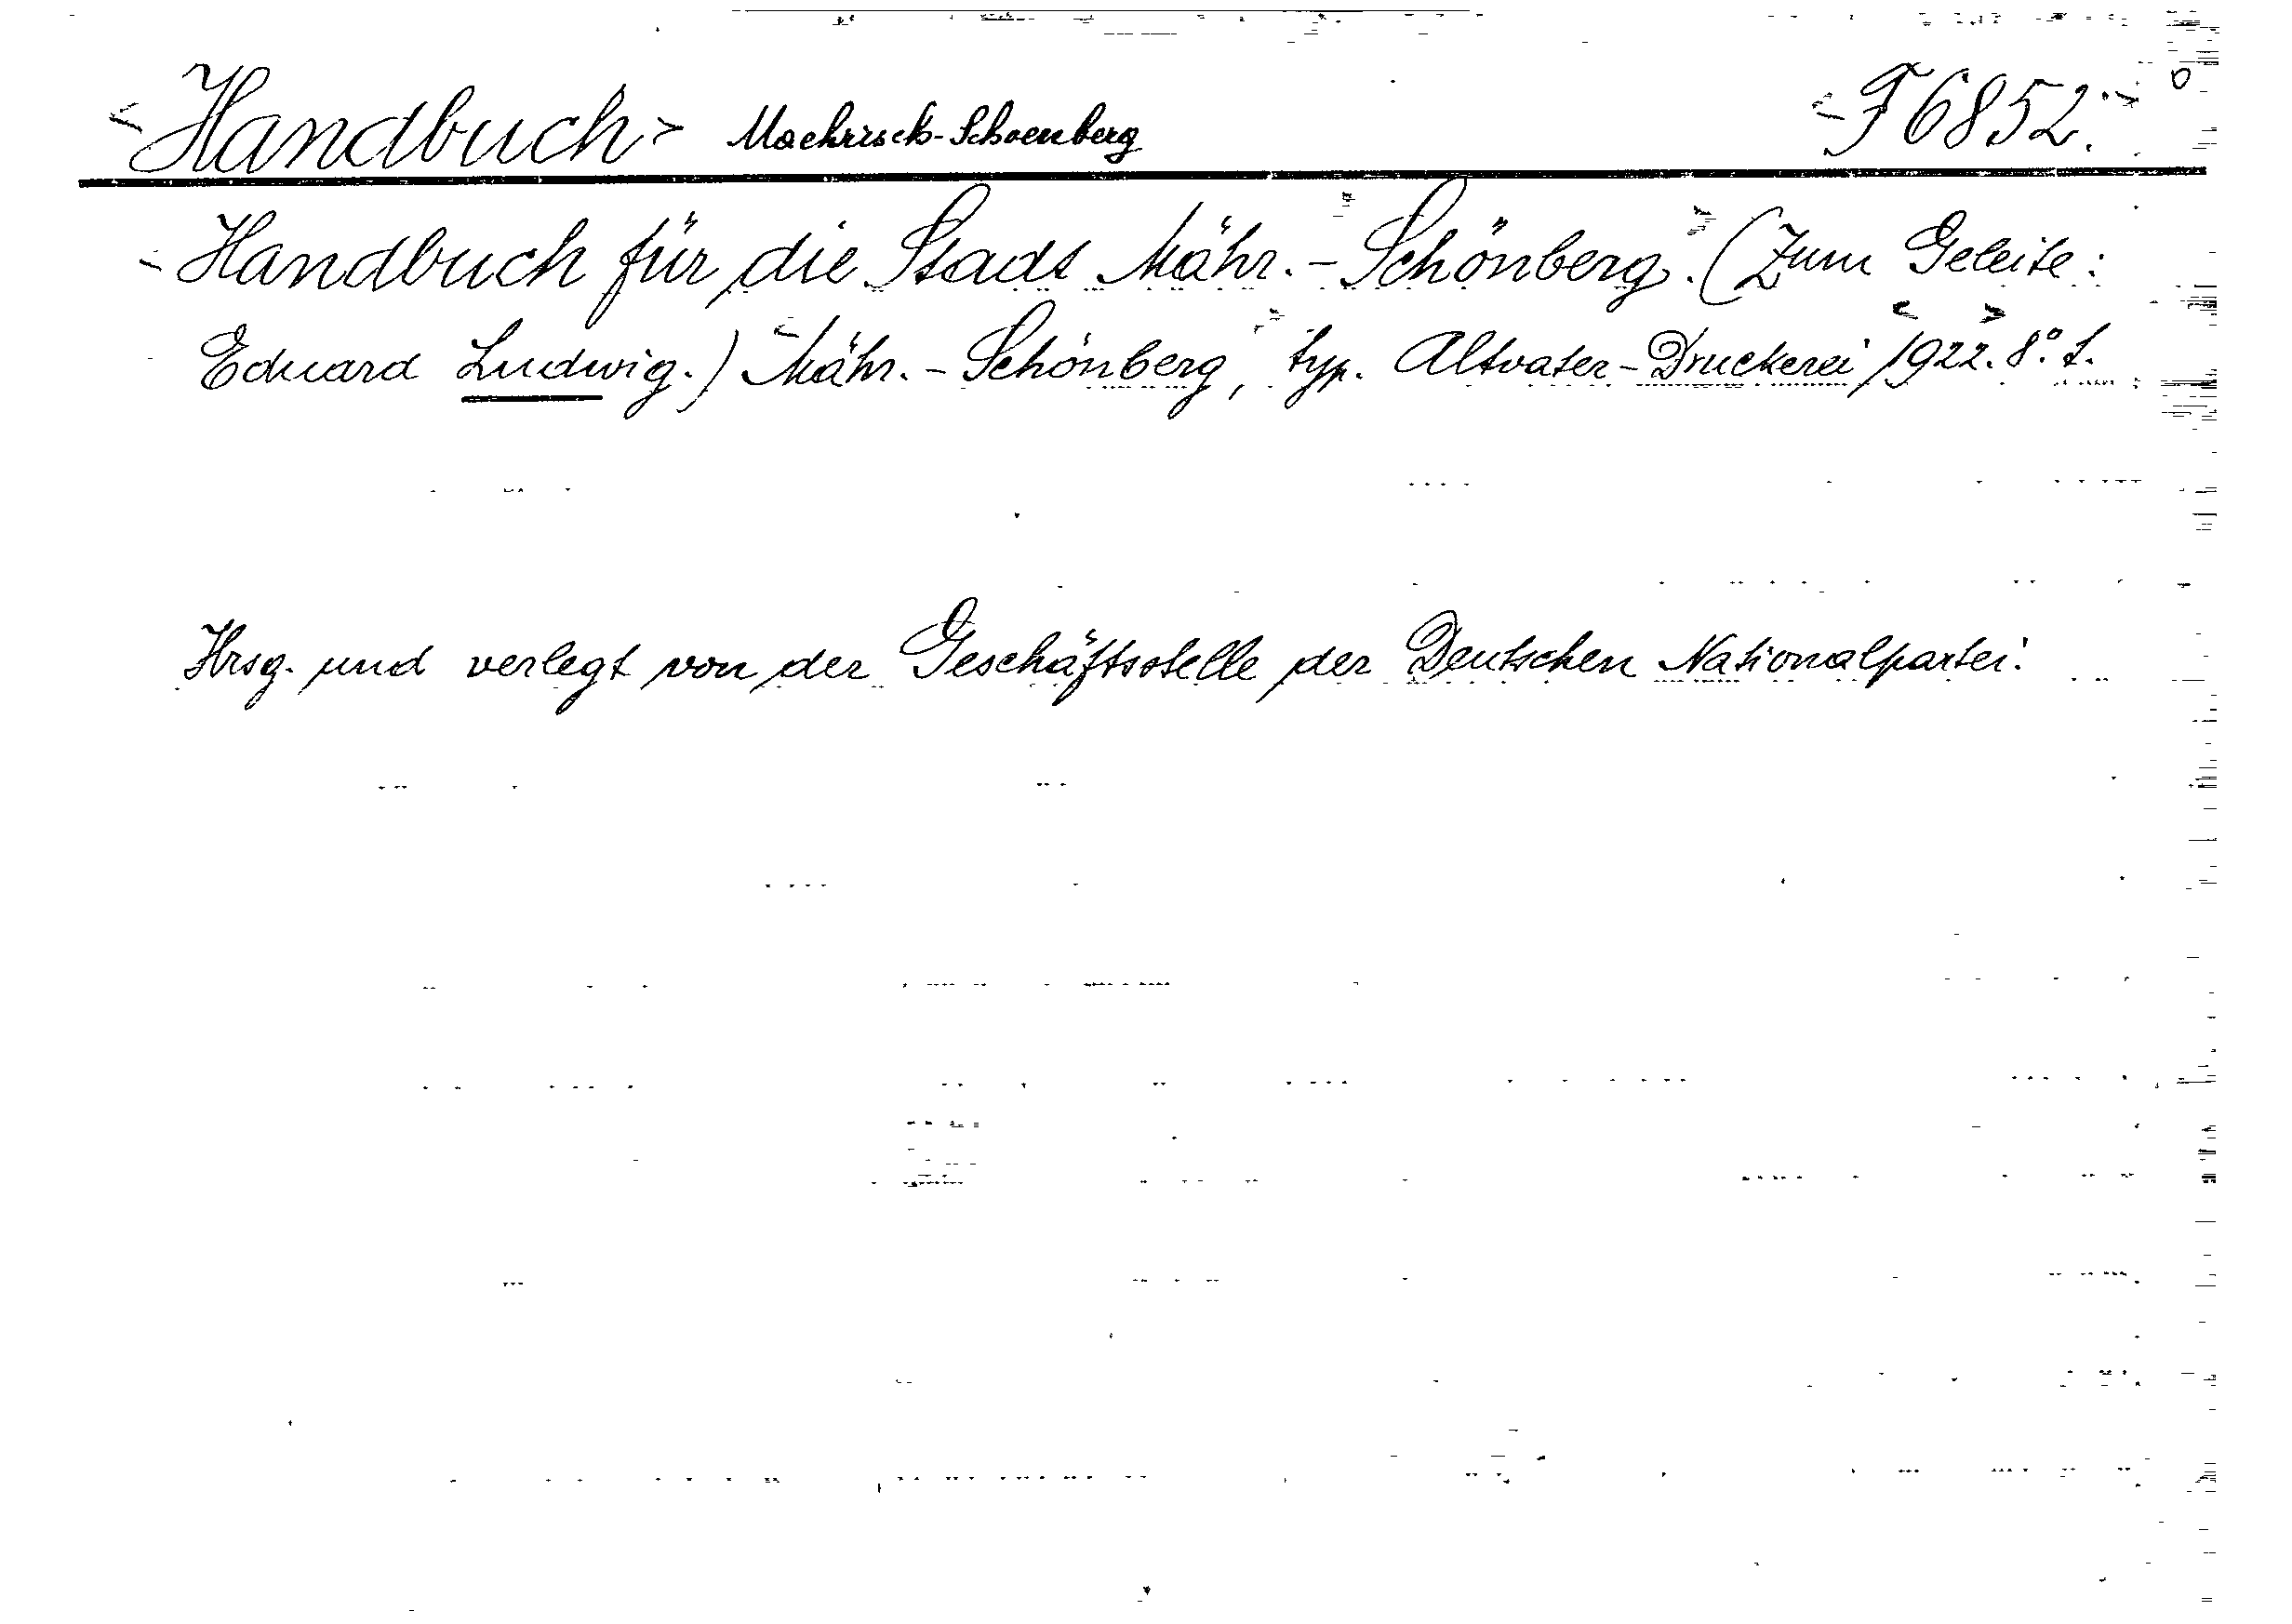 <Handbuch> Maehrisch-Schoenberg <F 6852.> o
<Handbuch für die Stadt "Mähr.-Schönberg". (Zum Geleite:
Eduard Ludwig.) <Mähr.-Schönberg,> typ. Altvater-Druckerei <1922>. 8°.
Hrsg. und verlegt von der Geschäftsstelle der Deutschen Nationalpartei.